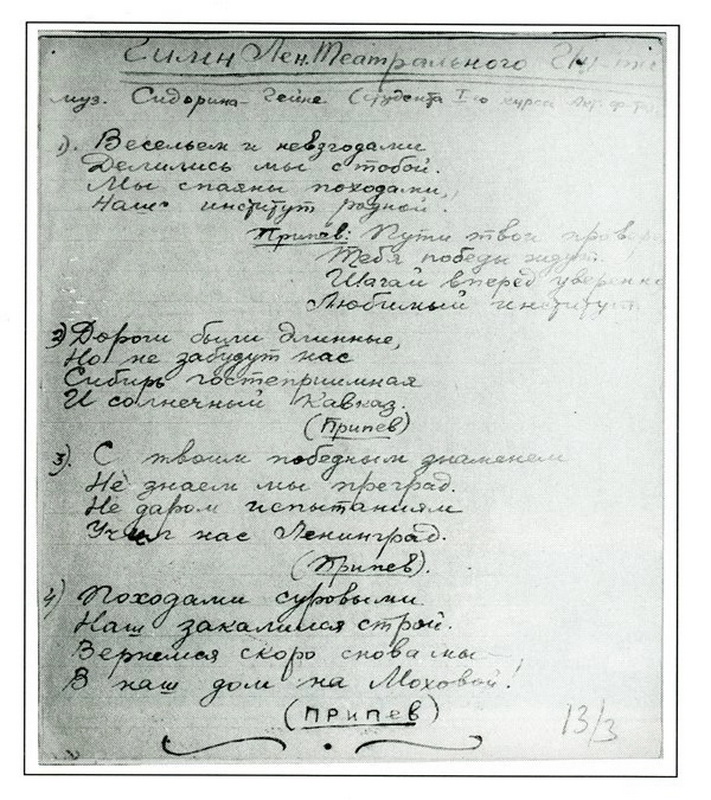 Гимн Лен. Театрального
муз. Сидорина-Гейне (студента I-го курса
1). Весельем и невзгодами
Делились мы с тобой.
Мы спаяны походами,
Наш институт родной!
Припев: Пути твои
Тебя победы ждут.
Шагай вперед уверенно
Любимый институт
2) Дороги были длинные,
Но не забудут нас
Сибирь гостеприимная
И солнечный Кавказ.
(Припев)
3). С твоим победным знаменем
Не знаем мы преград.
Не даром испытаниям
Учил нас Ленинград.
(Припев).
4) Походами суровыми
Наш закалился строй.
Вернемся скоро снова мы
В наш дом на Моховой!
(Припев)
13/3